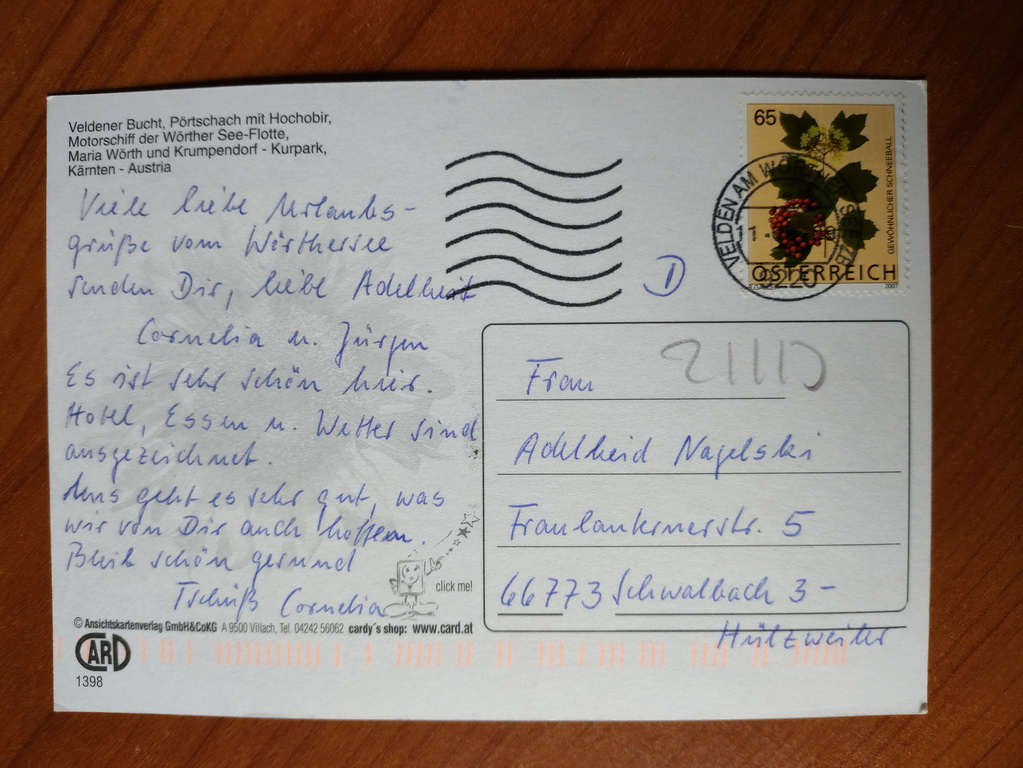 Veldener Bucht, Pörtschach mit Hochobir,
Motorschiff der Wörther See-Flotte,
Maria Wörth und Krumpendorf - Kurpark,
Kärnten - Austria
Viele liebe Urlaubs-
grüße vom Wörthersee
senden Dir, liebe Adelheit
Cornelia u. Jürgen
Es ist sehr schön hier.
Hotel, Essen u. Wetter sind
ausgezeichnet.
Uns geht es sehr gut, was
wir von Dir auch hoffen.
Bleib schön gesund
Tschüß Cornelia
click me!
© Ansichtskartenverlag GmbH&CoKG A 9500 Villach, Tel. 04242 56062 cardy´s shop: www.card.at
CARD
1398
65
GEWÖHNLICHER SCHNEEBALL
ÖSTERREICH
2007
VELDEN AM WÖRTHER SEE
9220
D
Frau
Adelheid Nagelski
Fraulauternerstr. 5
66773 Schwalbach 3 -
Hülzweiler